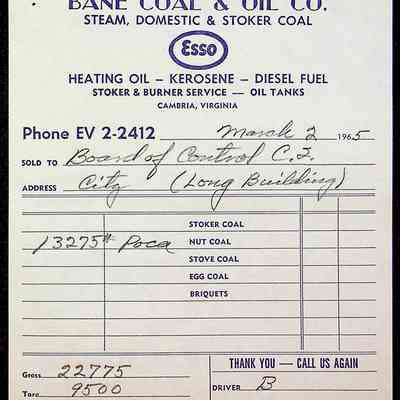 BANE COAL & OIL CO.
STEAM, DOMESTIC & STOKER COAL
Esso
HEATING OIL — KEROSENE — DIESEL FUEL
STOKER & BURNER SERVICE — OIL TANKS
CAMBRIA, VIRGINIA
Phone EV 2-2412 March 2 1965
SOLD TO Board of Control C.F.
ADDRESS City (Long Building)
STOKER COAL
13275# Poca NUT COAL
STOVE COAL
EGG COAL
BRIQUETS
Gross 22775
THANK YOU — CALL US AGAIN
Tare 9500
DRIVER B